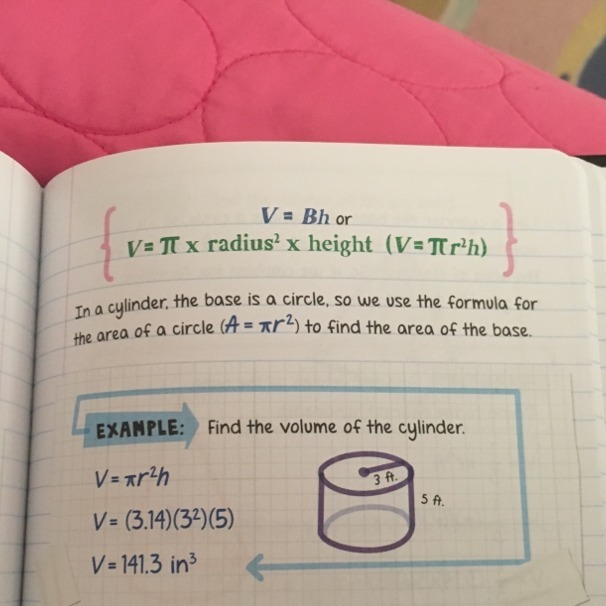 V = Bh or
V = π x radius² x height (V = πr²h)
In a cylinder, the base is a circle, so we use the formula for
the area of a circle (A = πr²) to find the area of the base.
EXAMPLE: Find the volume of the cylinder.
V = πr²h
3 ft.
5 ft.
V = (3.14)(3²)(5)
V = 141.3 in³